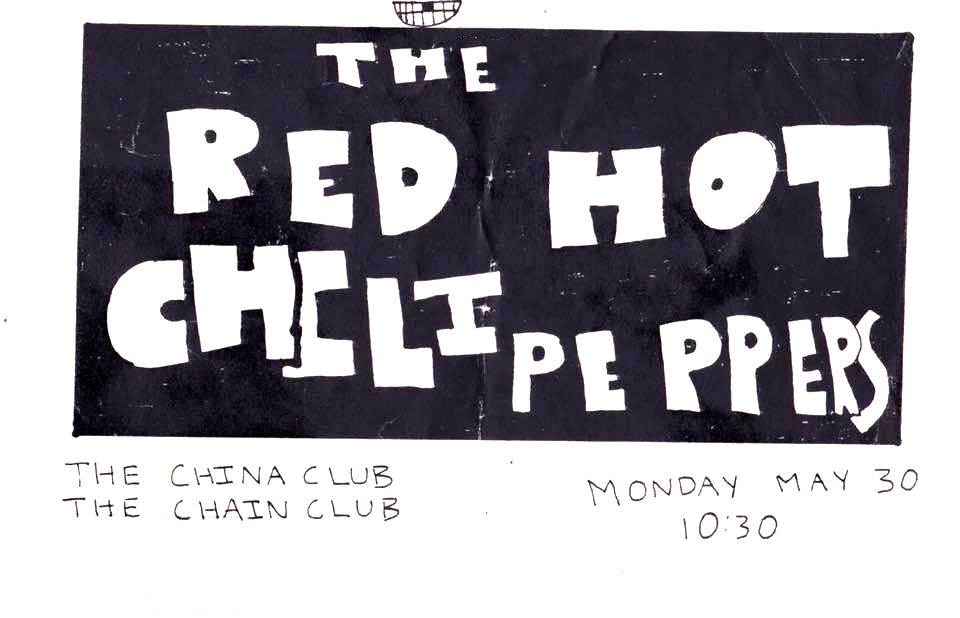 THE
RED HOT
CHILI PEPPERS
THE CHINA CLUB
THE CHAIN CLUB
MONDAY MAY 30
10:30